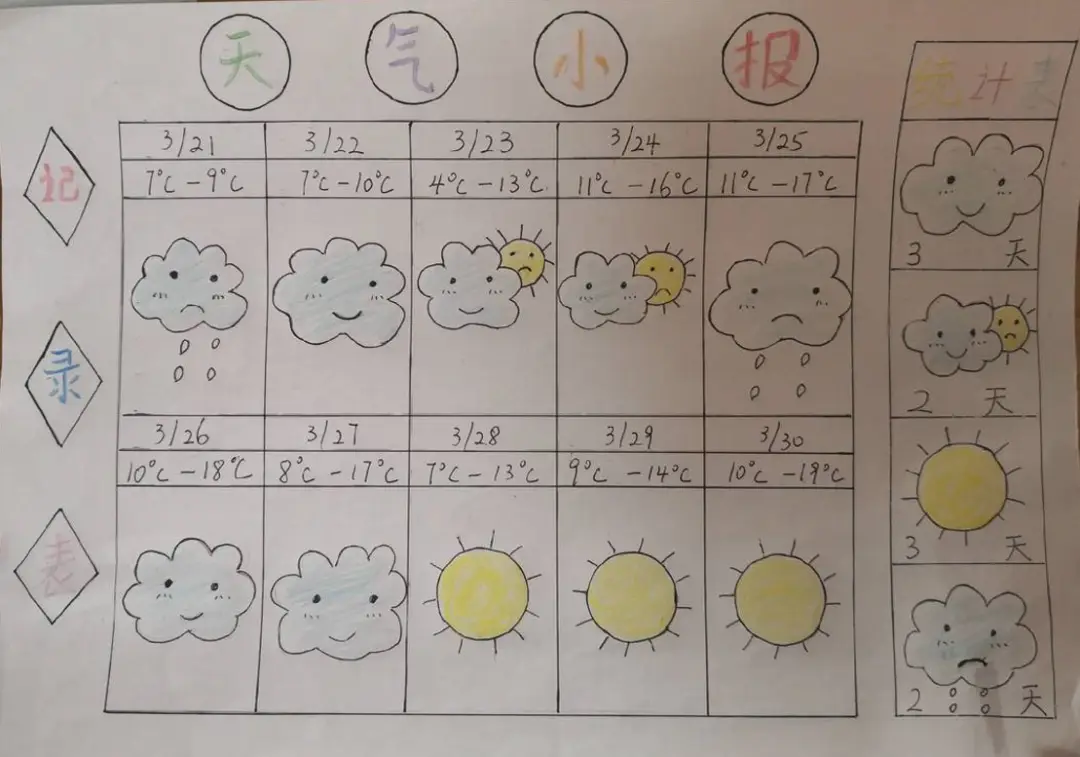 天气小报
记录表
3/21 3/22 3/23 3/24 3/25
7°C-9°C 7°C-10°C 4°C-13°C. 11°C-16°C 11°C-17°C
3/26 3/27 3/28 3/29 3/30
10°C-18°C 8°C-17°C 7°C-13°C 9°C-14°C 10°C-19°C
统计表
3天
2天
3天
2天